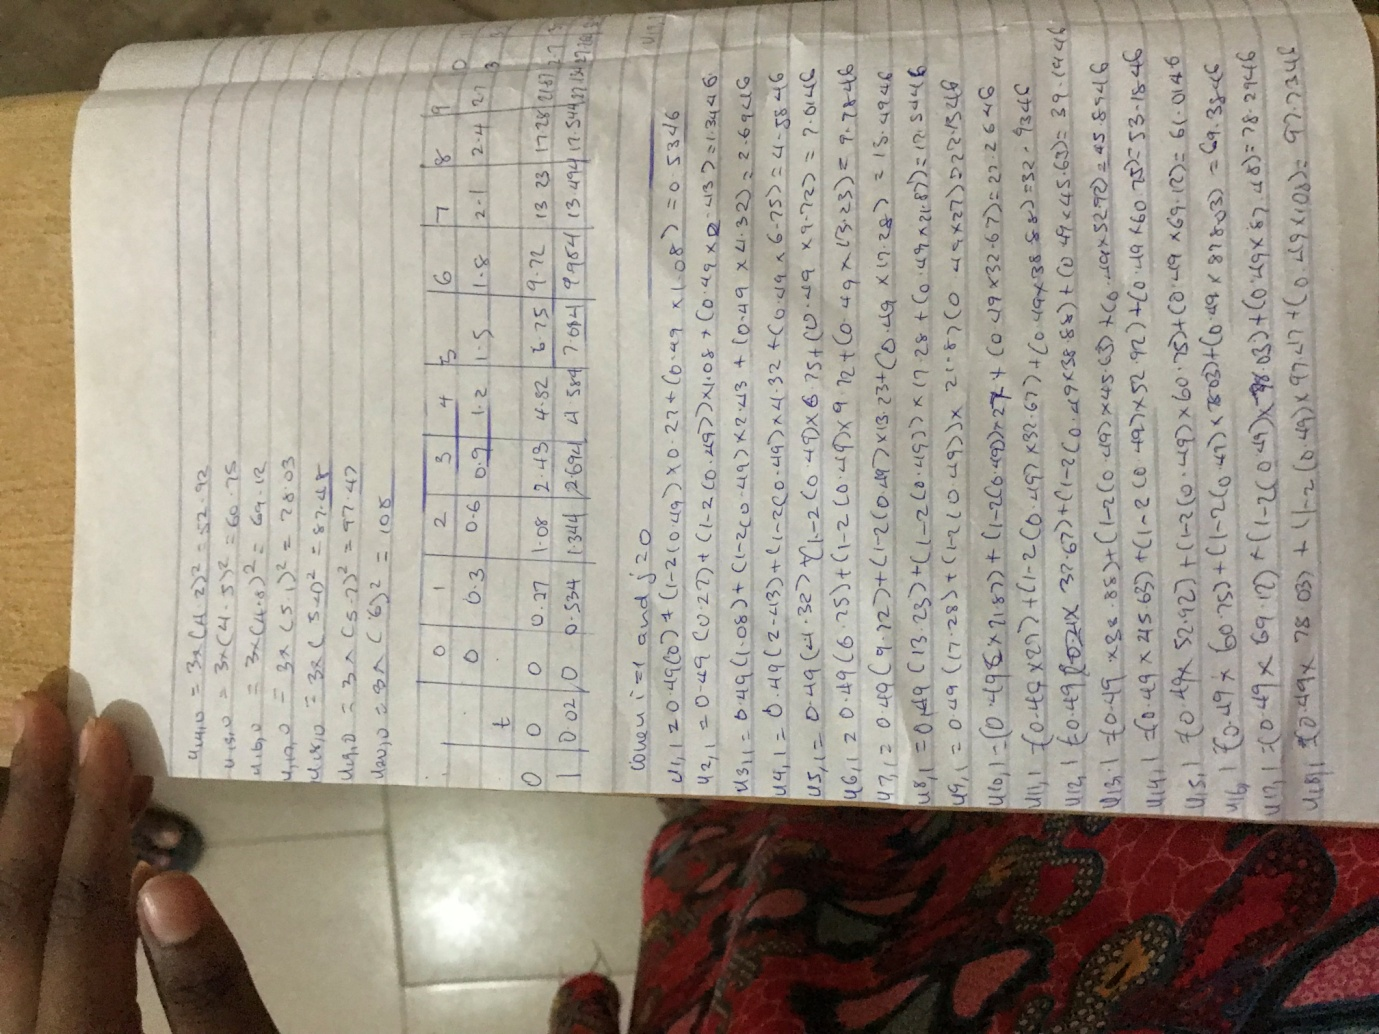 u14,0 = 3x(4.2)² = 52.92
u15,0 = 3x(4.5)² = 60.75
u16,0 = 3x(4.8)² = 69.12
u17,0 = 3x(5.1)² = 78.03
u18,0 = 3x(5.4)² = 87.48
u19,0 = 3x(5.7)² = 97.47
u20,0 = 3x(6)² = 108
0 1 2 3 4 5 6 7 8 9
0 0.3 0.6 0.9 1.2 1.5 1.8 2.1 2.4 27
t
0 0 0 0.27 1.08 2.43 4.32 6.75 9.72 13 23 17.28 21.87
1 0.02 0 0.534 1.344 2.694 4 584 7 014 13.494 17.544
when i=1 and j=0
u1,1 = 0.49(0) + (1-2(0.49)x0.27+(0.49 x1.08) = 0.5346
u2,1 = 0.49(0.27)+(1-2(0.49))x1.08+(0.49x2.43)=1.3446
u3,1 = 0.49(1.08)+(1-2(0.49)x2.43+(0.49 x4.32)=2.6946
u4,1 = 0.49(2.43)+(1-2(0.49)x4.32+(0.49x 6.75)=4.5846
u5,1 = 0.49(4.32)+(1-2(0.49)x6.75+(0.49 x9.72) = 7.0146
u6,1 = 0.49(6.75)+(1-2(0.49)x9.72+(0.49x13.23)=9.7846
u7,1 = 0.49(9.72)+(1-2(0.49)x13.23+(0.49 x17.28) = 13.4946
u8,1 = 0.49(13.23)+(1-2(0.49))x17.28+(0.49x21.87)=17.5446
u9,1 = 0.49(17.28)+(1-2(0.49))x 21.87(0.49x27)=22.1346
u10,1 = (0.49 x21.87)+(1-2(0.49)x27+(0.49x32.67)=27.2646
u11,1 = (0.49x27)+(1-2(0.49)x32.67)+(0.49x38.88)=32.9346
u12,1 (0.49 x 32.67)+(1-2(0.49x38.88)+(0.49x45.63)=39.1446
u13,1 = (0.49 x38.88)+(1-2(0.49)x45.63)+(0.49x52.92)=45.8946
u14,1 = (0.49x45.63)+(1-2(0.49)x52.92)+(0.49x60.75)=53.1846
u15,1 (0.49x52.92)+(1-2(0.49)x60.75)+(0.49x69.12)=61.0146
u16,1 (0.49x 60.75)+(1-2(0.49)x78.03)+(0.49x 878.03)=69.3846
u17,1 = (0.49x 69.12)+(1-2(0.49)x78.03)+(0.49x87.48)=78.2946
u18,1 = (0.49x 78.03) + (1-2(0.49)x97.47+(0.49x108)= 97.7346